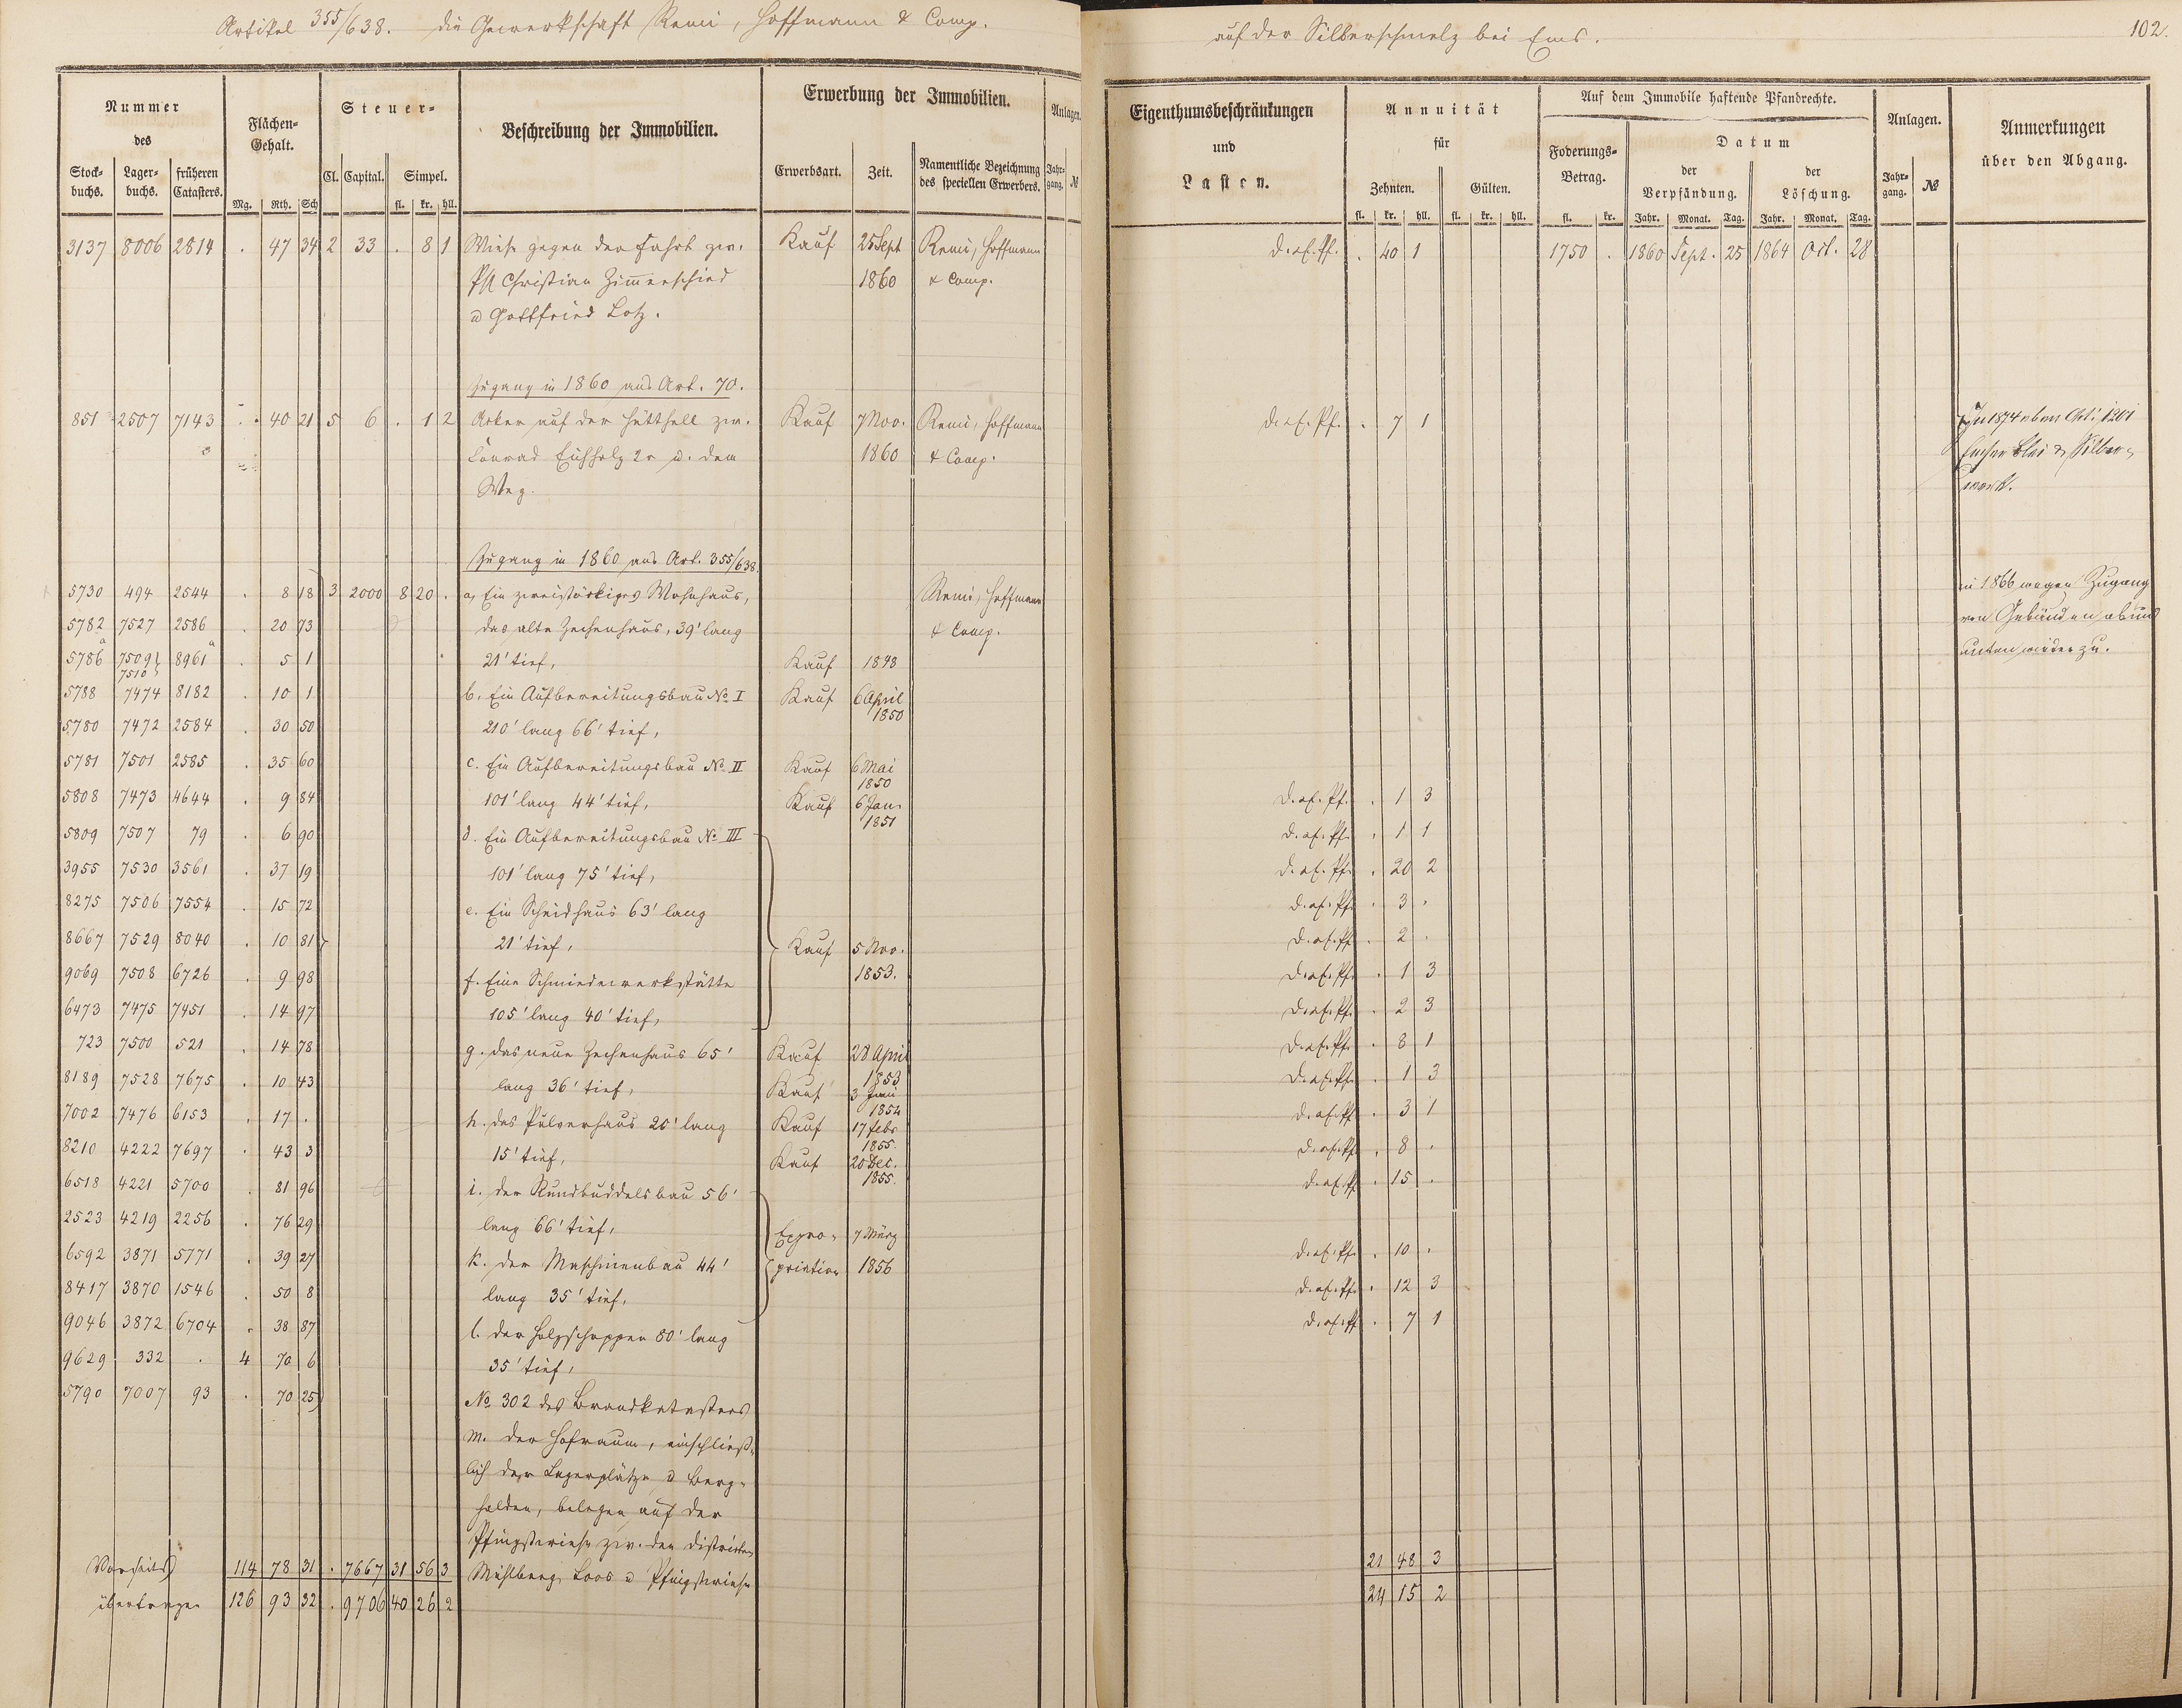 Artikel 355/638. die Gewerkschaft Remi, Hoffmann & Comp.
auf der Silberschmelz bei Ems.
102.
Nummer
des
Stock-
buchs.
Lager-
buchs.
früheren
Catasters.
Flächen-
Gehalt.
Mg. Rth. Sch
Steuer-
Cl. Capital. Simpel.
fl. kr. hll.
Beschreibung der Immobilien.
Erwerbung der Immobilien.
Erwerbsart. Zeit.
Namentliche Bezeichnung
des speciellen Erwerbers.
Anlagen.
Jahr-
gang. №
Eigenthumsbeschränkungen
und
Lasten.
Annuität
für
Zehnten. Gülten.
fl. kr. hll. fl. kr. hll.
Auf dem Immobile haftende Pfandrechte.
Foderungs-
Betrag.
fl. kr.
Datum
der
Verpfändung.
der
Löschung.
Jahr. Monat. Tag. Jahr. Monat. Tag.
Anlagen.
Jahr-
gang. №
Anmerkungen
über den Abgang.
3137 8006 2814 . 47 34 2 33 . 8 1 Wiese gegen der Fahrt zw. Kauf 25 Sept Remi, Hoffmann d. af. Pf. . 40 1 1750 . 1860 Sept. 25 1864 Oct. 28
Christian Zimmerschied 1860 & Comp.
u Gottfried Lotz.
Zugang in 1860 aus Art. 70.
851 2507 7143 . 40 21 5 6 . 1 2 Acker auf der Hütthell zw. Kauf 7 Nov. Remi, Hoffmann d. af. Pf. . 7 1
Conrad Eichholz 2r u. dem 1860 & Comp.
Weg.
In 1874 Art. 1201
Emser Blei & Silber-
werk.
Zugang in 1860 aus Art. 355/638.
5730 494 2544 . 8 18 3 2000 8 20 . a, Ein zweistöckiges Wohnhaus, Remi, Hoffmann in 1866 wegen Zugang
5782 7527 2586 . 20 73 das alte Zechenhaus, 39' lang & Comp. von Gebäuden ab und
5786 a 7509 7510 8961 a . 5 1 21' tief, Kauf 1848 unten wieder zu.
5788 7474 8182 . 10 1 b. Ein Aufbereitungsbau No I Kauf 6 April
1850
5780 7472 2584 . 30 50 210' lang 66' tief,
5781 7501 2585 . 35 60 c. Ein Aufbereitungsbau No II Kauf 6 Mai
1850
5808 7473 4644 . 9 84 101' lang 44' tief, Kauf 6 Jan.
1851 d. af. Pf. . 1 3
5809 7507 79 . 6 90 d. Ein Aufbereitungsbau No III d. af. Pf. . 1 1
3955 7530 3561 . 37 19 101' lang 75' tief, d. af. Pf. . 20 2
8275 7506 7554 . 15 72 e. Ein Scheidhaus 63' lang d. af. Pf. . 3 .
8667 7529 8040 . 10 81 21' tief, Kauf 5 Nov. d. af. Pf. . 2 .
9069 7508 6726 . 9 98 f. Eine Schmiedewerkstätte 1853. d. af. Pf. . 1 3
6473 7475 7451 . 14 97 105' lang 40' tief, d. af. Pf. . 2 3
723 7500 521 . 14 78 g. das neue Zechenhaus 65' Kauf 28 April
1853 d. af. Pf. . 8 1
8189 7528 7675 . 10 43 lang 36' tief, Kauf 3 Juni
1854 d. af. Pf. . 1 3
7002 7476 6153 . 17 . h. das Pulverhaus 20' lang Kauf 17 febr
1855. d. af. Pf. . 3 1
8210 4222 7697 . 43 3 15' tief, Kauf 20 Dec.
1855. d. af. Pf. . 8 .
6518 4221 5700 . 81 96 i. der Rundbuddelsbau 56' d. af. Pf. . 15 .
2523 4219 2256 . 76 29 lang 66' tief, Expro- 7 März
6592 3871 5771 . 39 27 k. der Maschinenbau 44' priation 1856 d. af. Pf. . 10 .
8417 3870 1546 . 50 8 lang 35' tief, d. af. Pf. . 12 3
9046 3872 6704 . 38 87 l. der Holzschoppen 80' lang d. af. Pf. . 7 1
9629 332 . 4 70 6 35' tief,
5790 7007 93 . 70 25 No 302 des Brandkatasters
m. der Hofraum, einschließ-
lich der Lagerplätze u Berg-
halden, belegen auf der
Pfingstwiese zw. den Districten
Vorseits 114 78 31 . 7667 31 56 3 Mühlberg, Loos u Pfingstwiese 21 48 3
übertragen 126 93 32 . 9706 40 26 2 24 15 2